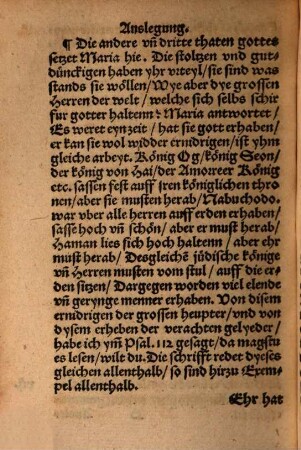 Auslegung.
¶ Die andere vñ dritte thaten gottes
setzet Maria hie. Die stoltzen vnd gut-
dünckigen haben yhr vrteyl / sie sind was
stands sie wöllen / Wye aber dye grossen
Herren der welt / welche sich selbs schir
fur gotter haltenn? Maria antwortet /
Es weret eyn zeit / hat sie gott erhaben /
er kan sie wol widder ernidrigen / ist yhm
gleiche arbeyt. König Og / könig Seon /
der könig von Hai / der Amoreer König
etc. sassen fest auff iren königlichen thro
nen / aber sie musten herab / Nabuchodo.
war vber alle herren auff erden erhaben /
sasse hoch vñ schön / aber er must herab /
Haman lies sich hoch haltenn / aber ehr
must herab / Desgleichē jüdische könige
vñ Herren musten vom stul / auff die er-
den sitzen / Dargegen worden viel elende
vñ gerynge menner erhaben. Von disem
ernidrigen der grossen heupter / vnd von
dysem erheben der verachten gelyeder /
habe ich ym̄ Psal. 112 gesagt / da magstu
es lesen / wilt du. Die schrifft redet dyeses
gleichen allenthalb / so sind hirzu Exem-
pel allenthalb.
Ehr hat